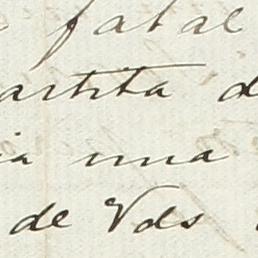 fatal
artita d
ia una
de Vds